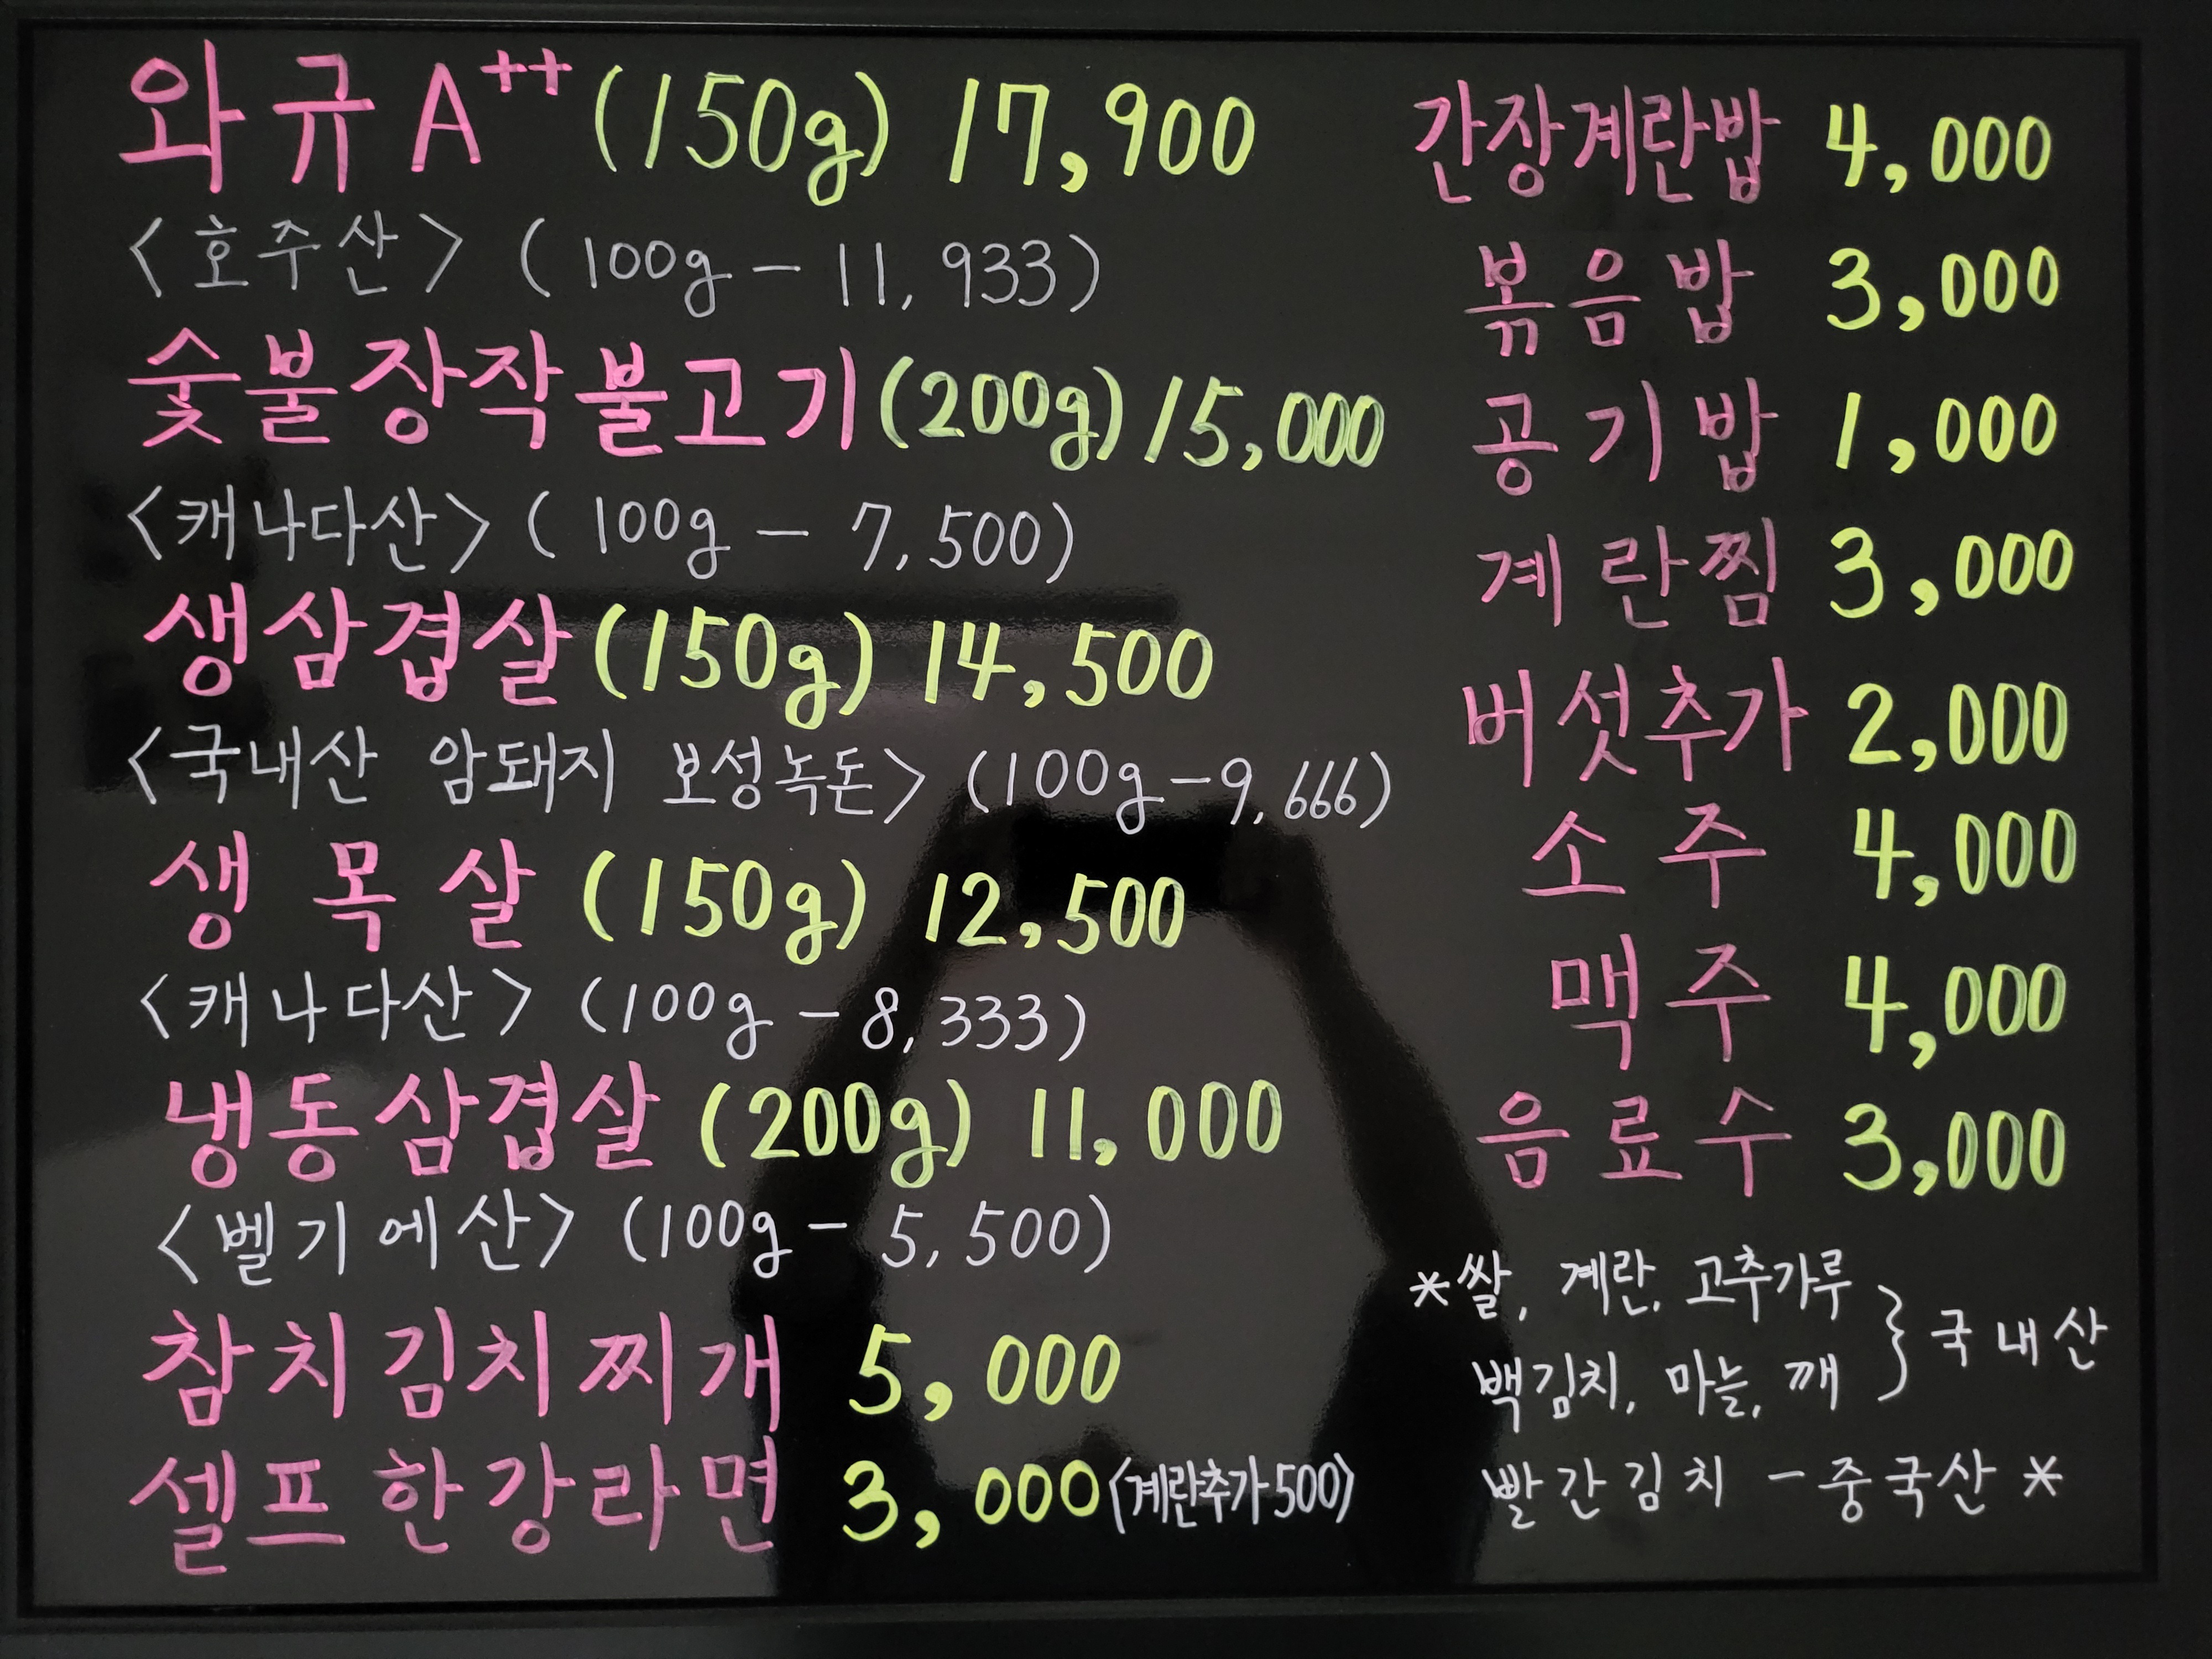 와규A++(150g) 17,900
<호주산> (100g - 11,933)
숯불장작불고기(200g) 15,000
<캐나다산> (100g - 7,500)
생삼겹살(150g) 14,500
<국내산 암돼지 보성녹돈> (100g-9,666)
생목살 (150g) 12,500
<캐나다산> (100g - 8,333)
냉동삼겹살 (200g) 11,000
<벨기에산> (100g - 5,500)
참치김치찌개 5,000
셀프 한강라면 3,000(계란추가500)
간장계란밥 4,000
볶음밥 3,000
공기밥 1,000
계란찜 3,000
버섯추가 2,000
소주 4,000
맥주 4,000
음료수 3,000
*쌀, 계란, 고추가루
백김치, 마늘, 깨 } 국내산
빨간김치 - 중국산 *